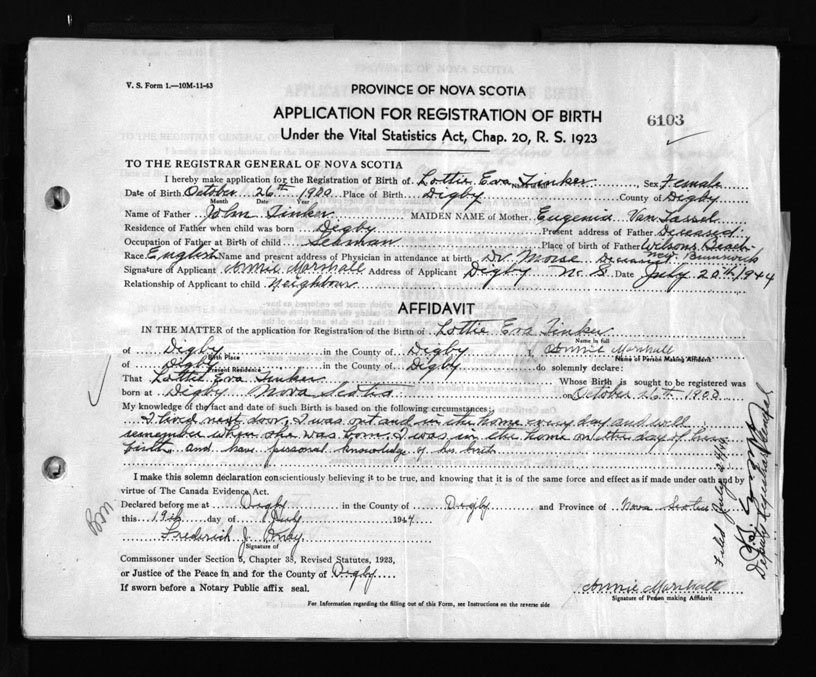 V. S. Form 1.—10M-11-43
PROVINCE OF NOVA SCOTIA
APPLICATION FOR REGISTRATION OF BIRTH
6103
Under the Vital Statistics Act, Chap. 20, R. S. 1923
TO THE REGISTRAR GENERAL OF NOVA SCOTIA
I hereby make application for the Registration of Birth of Lottie Eva Tinker, Sex Female
Date of Birth October 26th 1900 Place of Birth Digby County of Digby
Month Date Year
Name of Father John Tinker MAIDEN NAME of Mother Eugenia Van Tassel
Residence of Father when child was born Digby Present address of Father Deceased
Occupation of Father at Birth of child Place of birth of Father Wilsons Beach
New Brunswick
Race English Name and present address of Physician in attendance at birth Dr. Morse Deceased
Signature of Applicant Annie Marshall Address of Applicant Digby N. S. Date July 20th 1944
Relationship of Applicant to child Neighbour
AFFIDAVIT
IN THE MATTER of the application for Registration of the Birth of Lottie Eva Tinker
Name in full
of Digby in the County of Digby I, Annie Marshall
Birth Place Name of Person Making Affidavit
of Digby in the County of Digby do solemnly declare:
Present Residence
That Lottie Eva Tinker Whose Birth is sought to be registered was
born at Digby Nova Scotia on October 26th 1900
My knowledge of the fact and date of such Birth is based on the following circumstances:
I lived next door, I was out and in the home every day and well
remember when she was born. I was in the home on the day of her
birth and have personal knowledge of his birth
I make this solemn declaration conscientiously believing it to be true, and knowing that it is of the same force and effect as if made under oath and by
virtue of The Canada Evidence Act.
Declared before me at Digby in the County of Digby and Province of Nova Scotia
this 19th day of July 1944
Frederick J.
Signature of
Commissioner under Section 5, Chapter 38, Revised Statutes, 1923,
or Justice of the Peace in and for the County of Digby
If sworn before a Notary Public affix seal.
Annie Marshall
Signature of Person making Affidavit
For Information regarding the filling out of this Form, see Instructions on the reverse side
Filed July
Deputy Registrar General